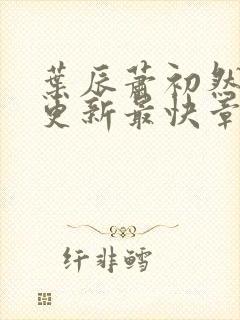 葉辰蕭初然
更新最快章
纤非鳕